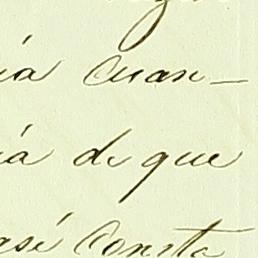 ia Cuan-
iá de que
asé Consta